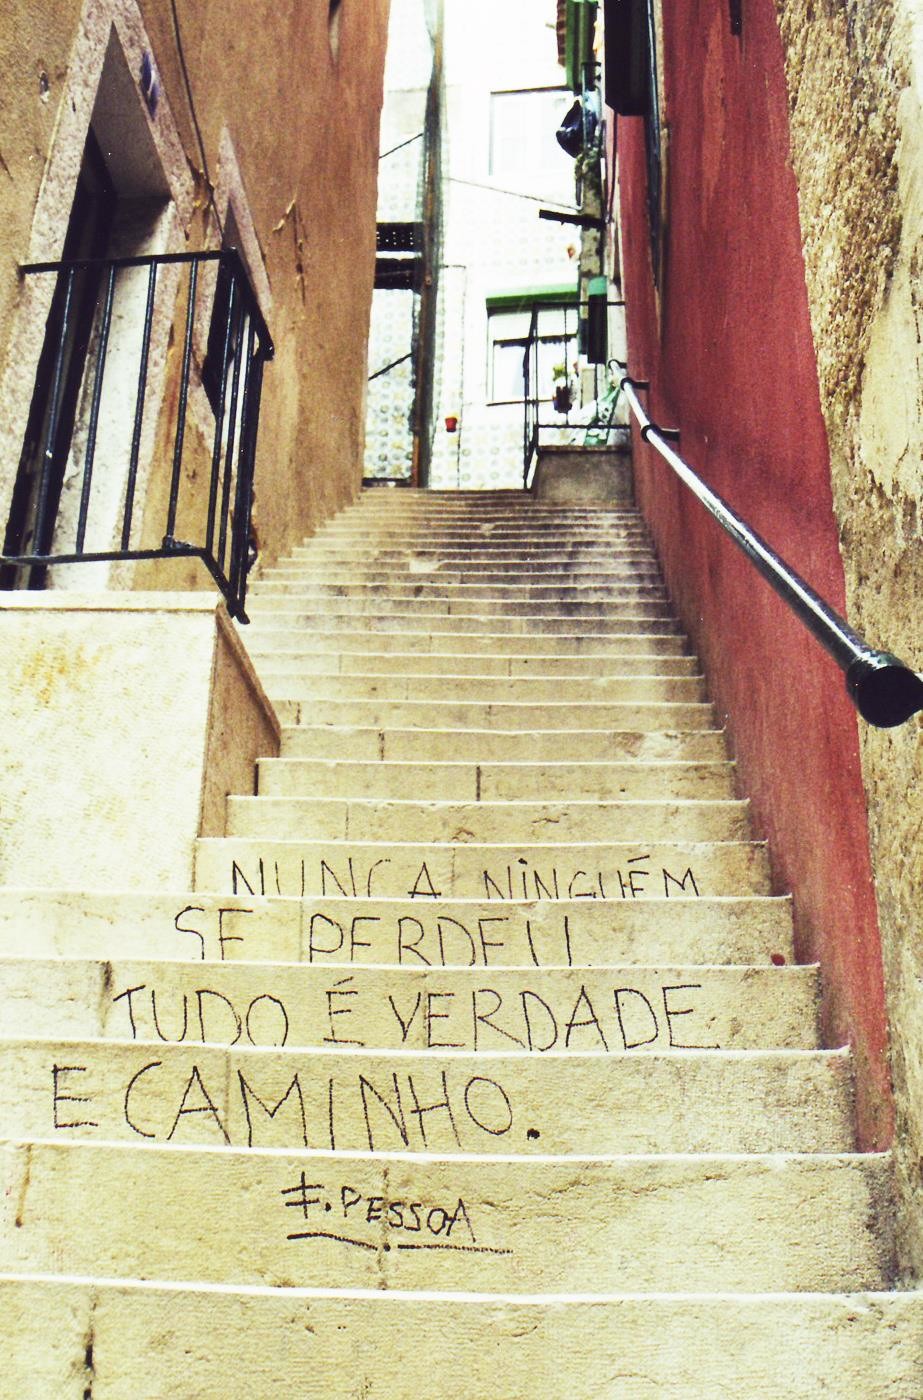 NUNCA NINGUÉM
SE PERDEU.
TUDO É VERDADE
E CAMINHO.
F. PESSOA